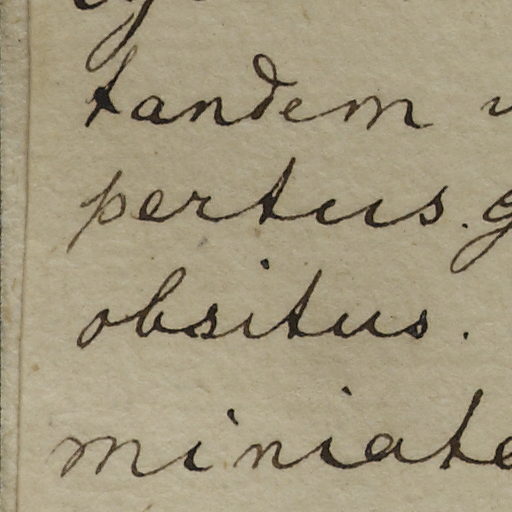 tandem
pertus.
obsitus.
miniate